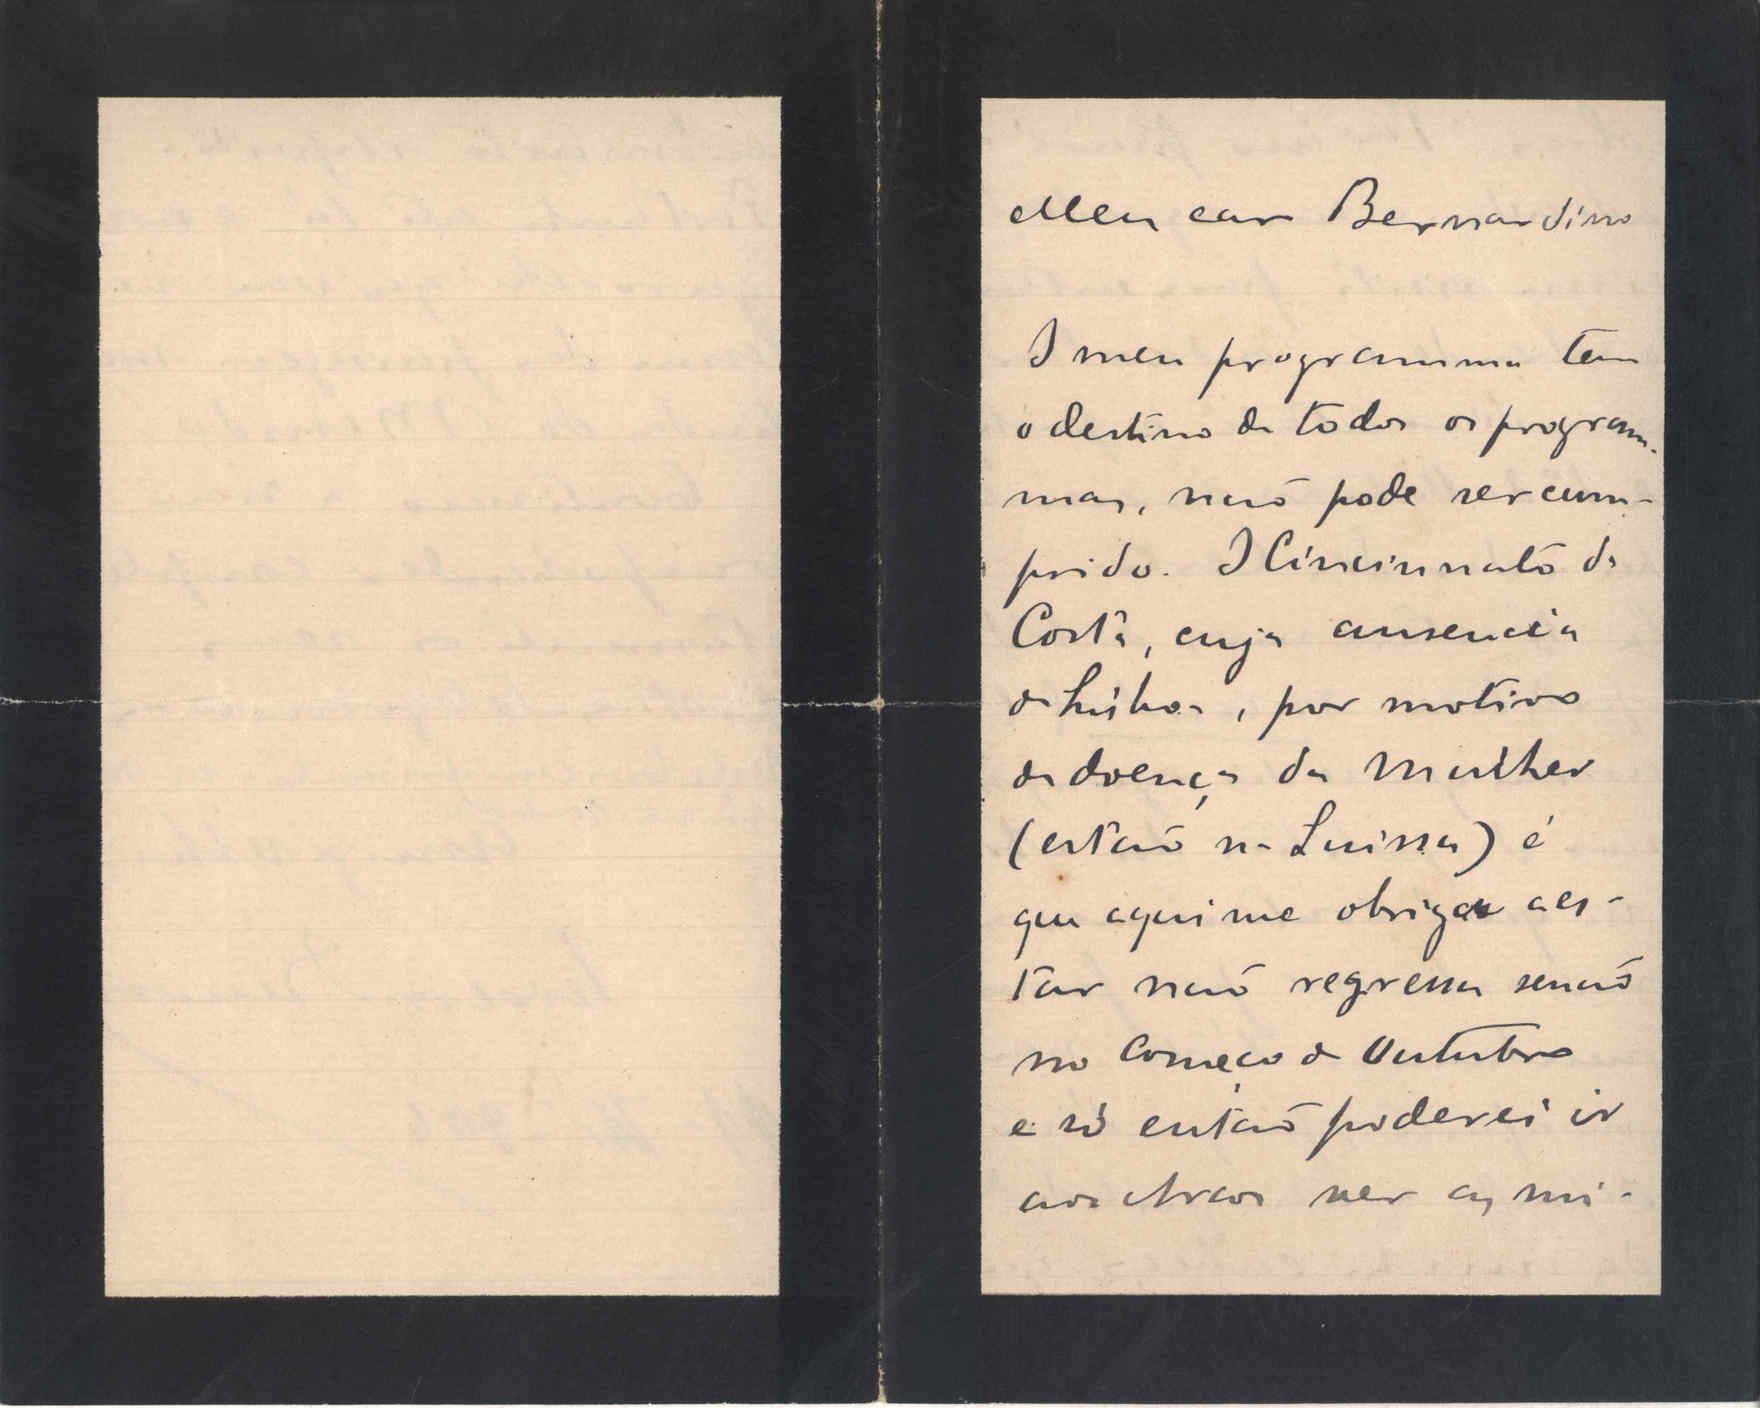 Meu caro Bernardino
O meu programma tem
o destino de todos os program-
mas, não pode ser cum-
prido. O Cincinnato da
Costa, cuja ausencia
de Lisboa, por motivo
de doença da mulher
(estão na Suissa) é
que aqui me obriga a es-
tar não regressa senão
no começo de Outubro
e só então poderei ir
aos Arcos ver as mi-